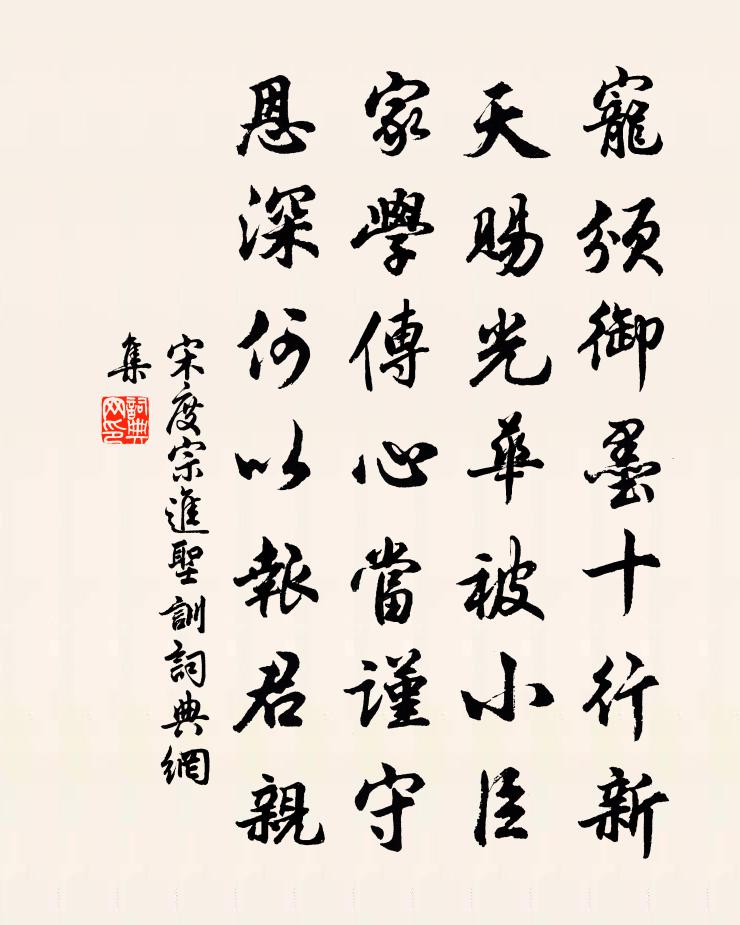 寵頒御墨十行新
天賜光華被小臣
家學傳心當謹守
恩深何以報君親
宋度宗進聖訓詞典網
集
詞典
网印